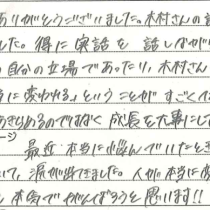 ありがとうございました。木村さんの
した。得に実話を話しながら
自分の立場であったり、木村さん
に変われる」ということがすごく
あきらめるのではなく成長を大事にして
ージ
最近本当に悩んでいたとき
いて、涙が出てきました。人が本当に
本気でがんばろうと思います!!